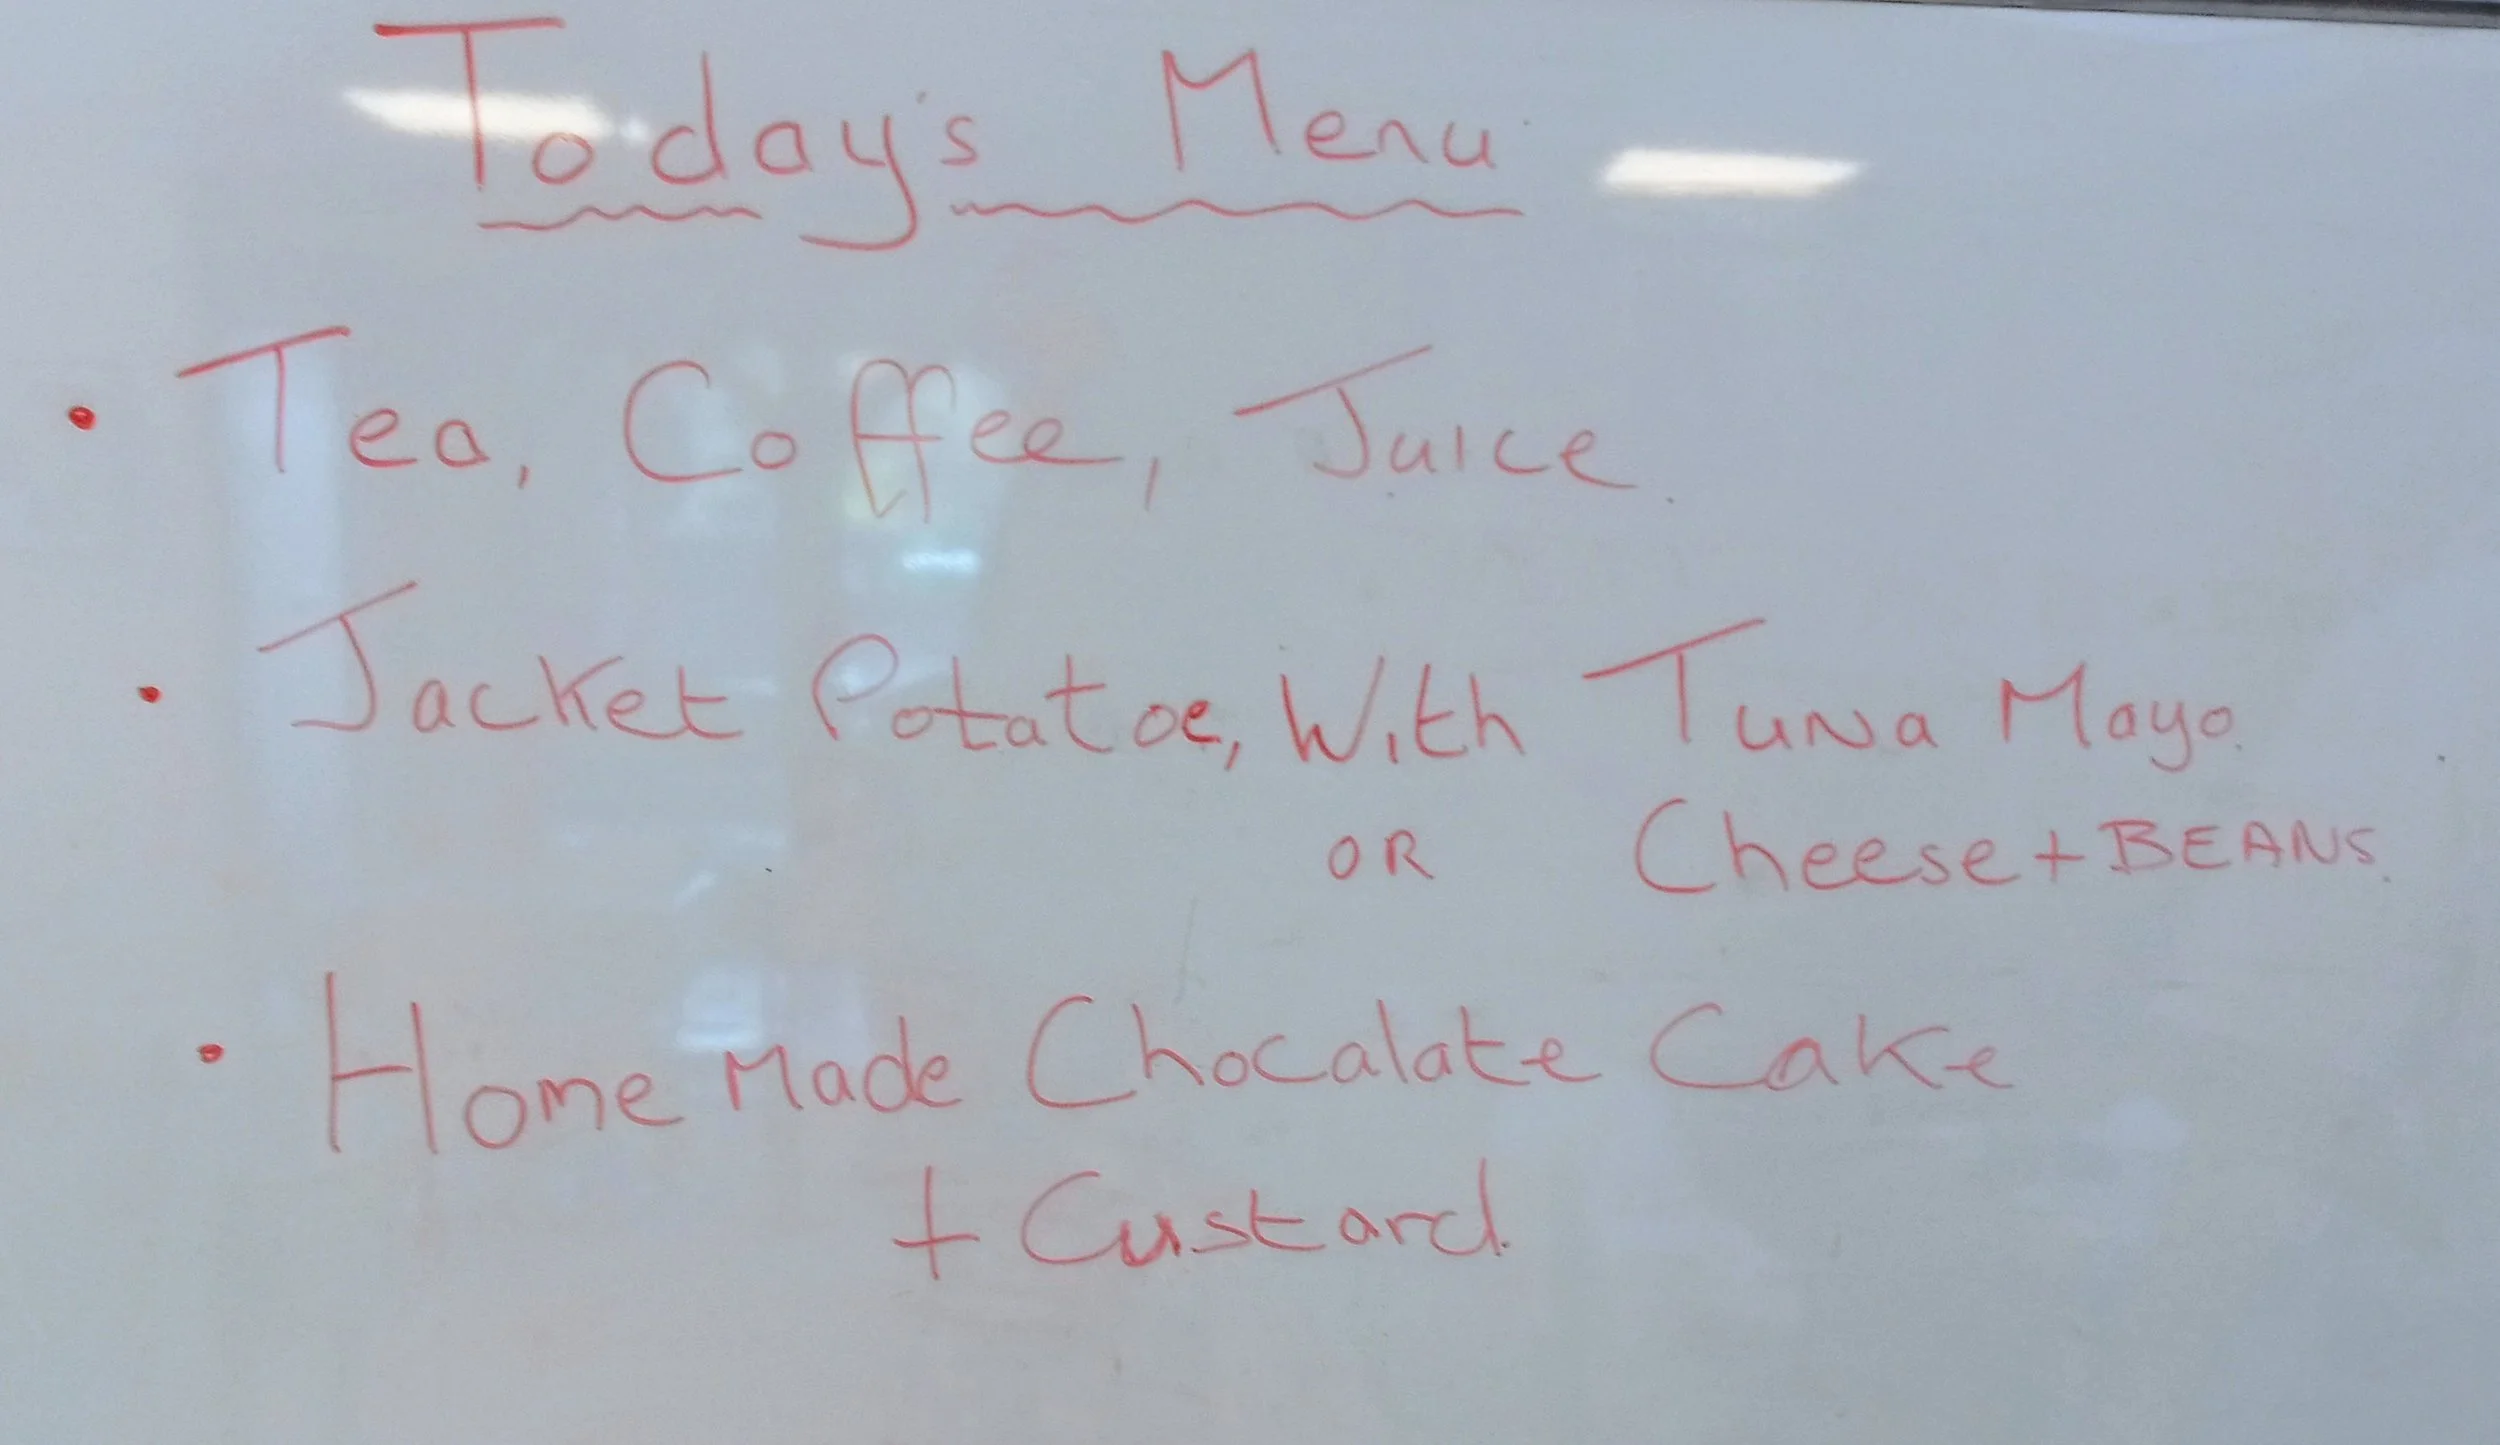 Today's Menu
• Tea, Coffee, Juice.
• Jacket Potatoe, With Tuna Mayo.
OR Cheese + BEANS.
• Home Made Chocalate Cake
+ Custard.